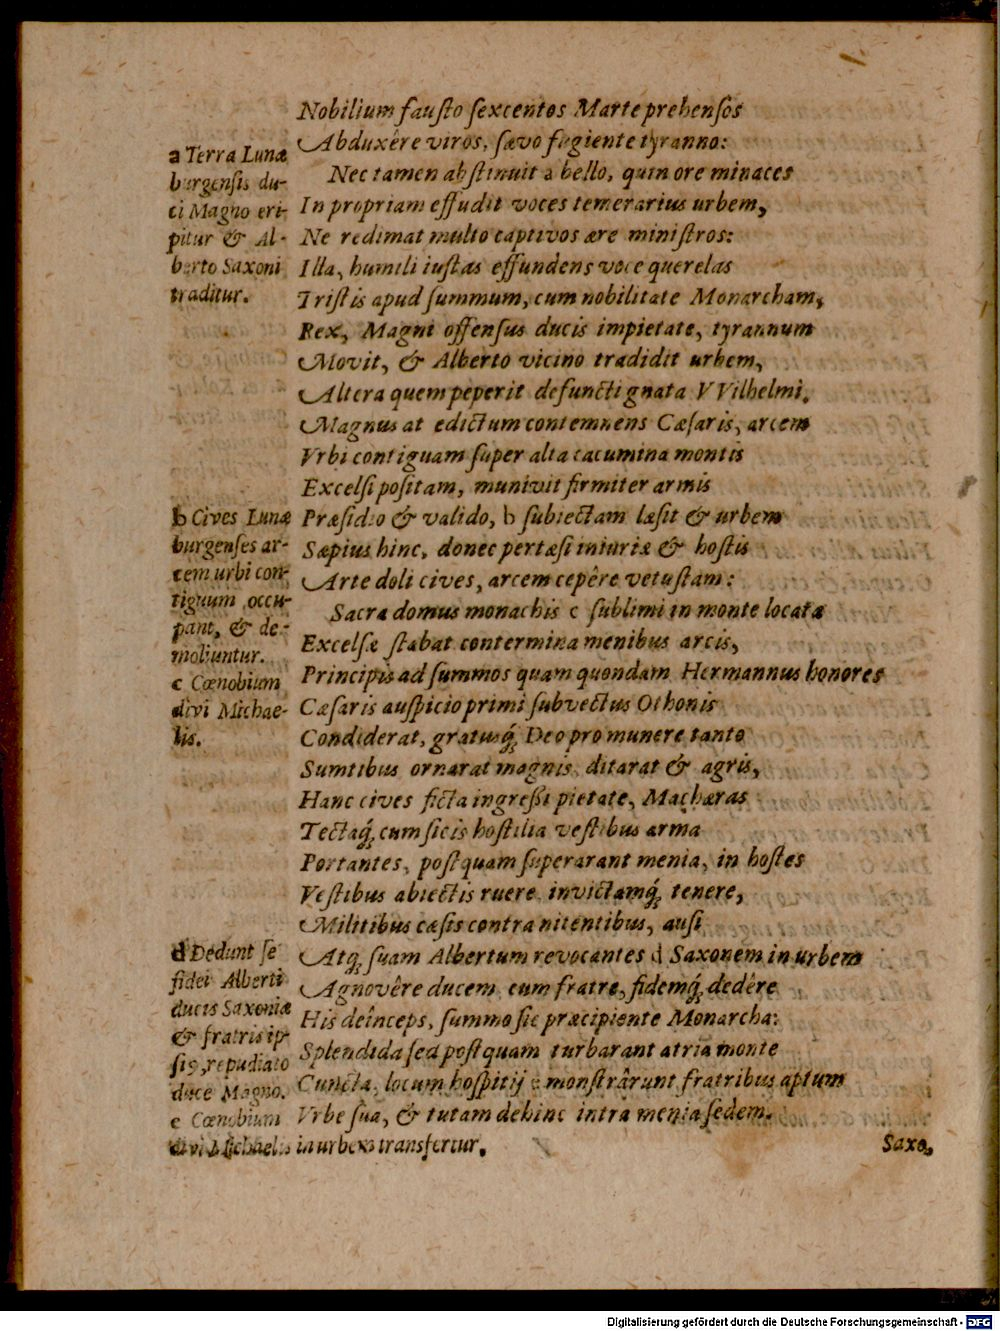 Nobilium fauſto ſexcentos Marte prehenſos
Abduxêre viros, ſævo fugiente tyranno:
Nec tamen abſtinuit a bello, quin ore minaces
In propriam effudit voces temerarius urbem,
Ne redimat multo captivos ære miniſtros:
Illa, humili iuſtas effundens voce querelas
Triſtis apud ſummum, cum nobilitate Monarcham,
Rex, Magni offenſus ducis impietate, tyrannum
Movit, & Alberto vicino tradidit urbem,
Altera quem peperit defuncti gnata VVilhelmi.
Magnus at edictum contemnens Cæſaris, arcem
Vrbi contiguam ſuper alta cacumina montis
Excelſi poſitam, munivit firmiter armis
Præſidio & valido, b ſubiectam læſit & urbem
Sæpius hinc, donec pertæſi iniuriæ & hoſtis
Arte doli cives, arcem cepêre vetuſtam:
Sacra domus monachis c ſublimi in monte locata
Excelſæ ſtabat contermina menibus arcis,
Principis ad ſummos quam quondam Hermannus honores
Cæſaris auſpicio primi ſubvectus Othonis
Condiderat, gratusq́; Deo pro munere tanto
Sumtibus ornarat magnis, ditarat & agris,
Hanc cives ficta ingreſſi pietate, Machæras
Tectaq́; cum ſicis hoſtilia veſtibus arma
Portantes, poſtquam ſuperarant menia, in hoſtes
Veſtibus abiectis ruere, invictamq́; tenere,
Militibus cæſis contra nitentibus, auſi
Atq; ſuam Albertum revocantes d Saxonem in urbem
Agnovêre ducem cum fratre, fidemq́; dedêre
His deînceps, ſummo ſic præcipiente Monarcha:
Splendida ſed poſtquam turbarant atria monte
Cuncta, locum hoſpitij e monſtrârunt fratribus aptum
Vrbe ſua, & tutam dehinc intra menia ſedem.
a Terra Lunæ
burgenſis du-
ci Magno eri-
pitur & Al-
berto Saxoni
traditur.
b Cives Lunæ
burgenſes ar-
cem urbi con-
tiguum occu-
pant, & de-
moliuntur.
c Cœnobium
divi Michae-
lis.
d Dedunt ſe
fidei Alberti
ducis Saxoniæ
& fratris ip-
ſi9, repudiato
duce Magno.
e Cœnobium
divi Michaelis in urbem transfertur.
Saxo,
Digitalisierung gefördert durch die Deutsche Forschungsgemeinschaft - DFG